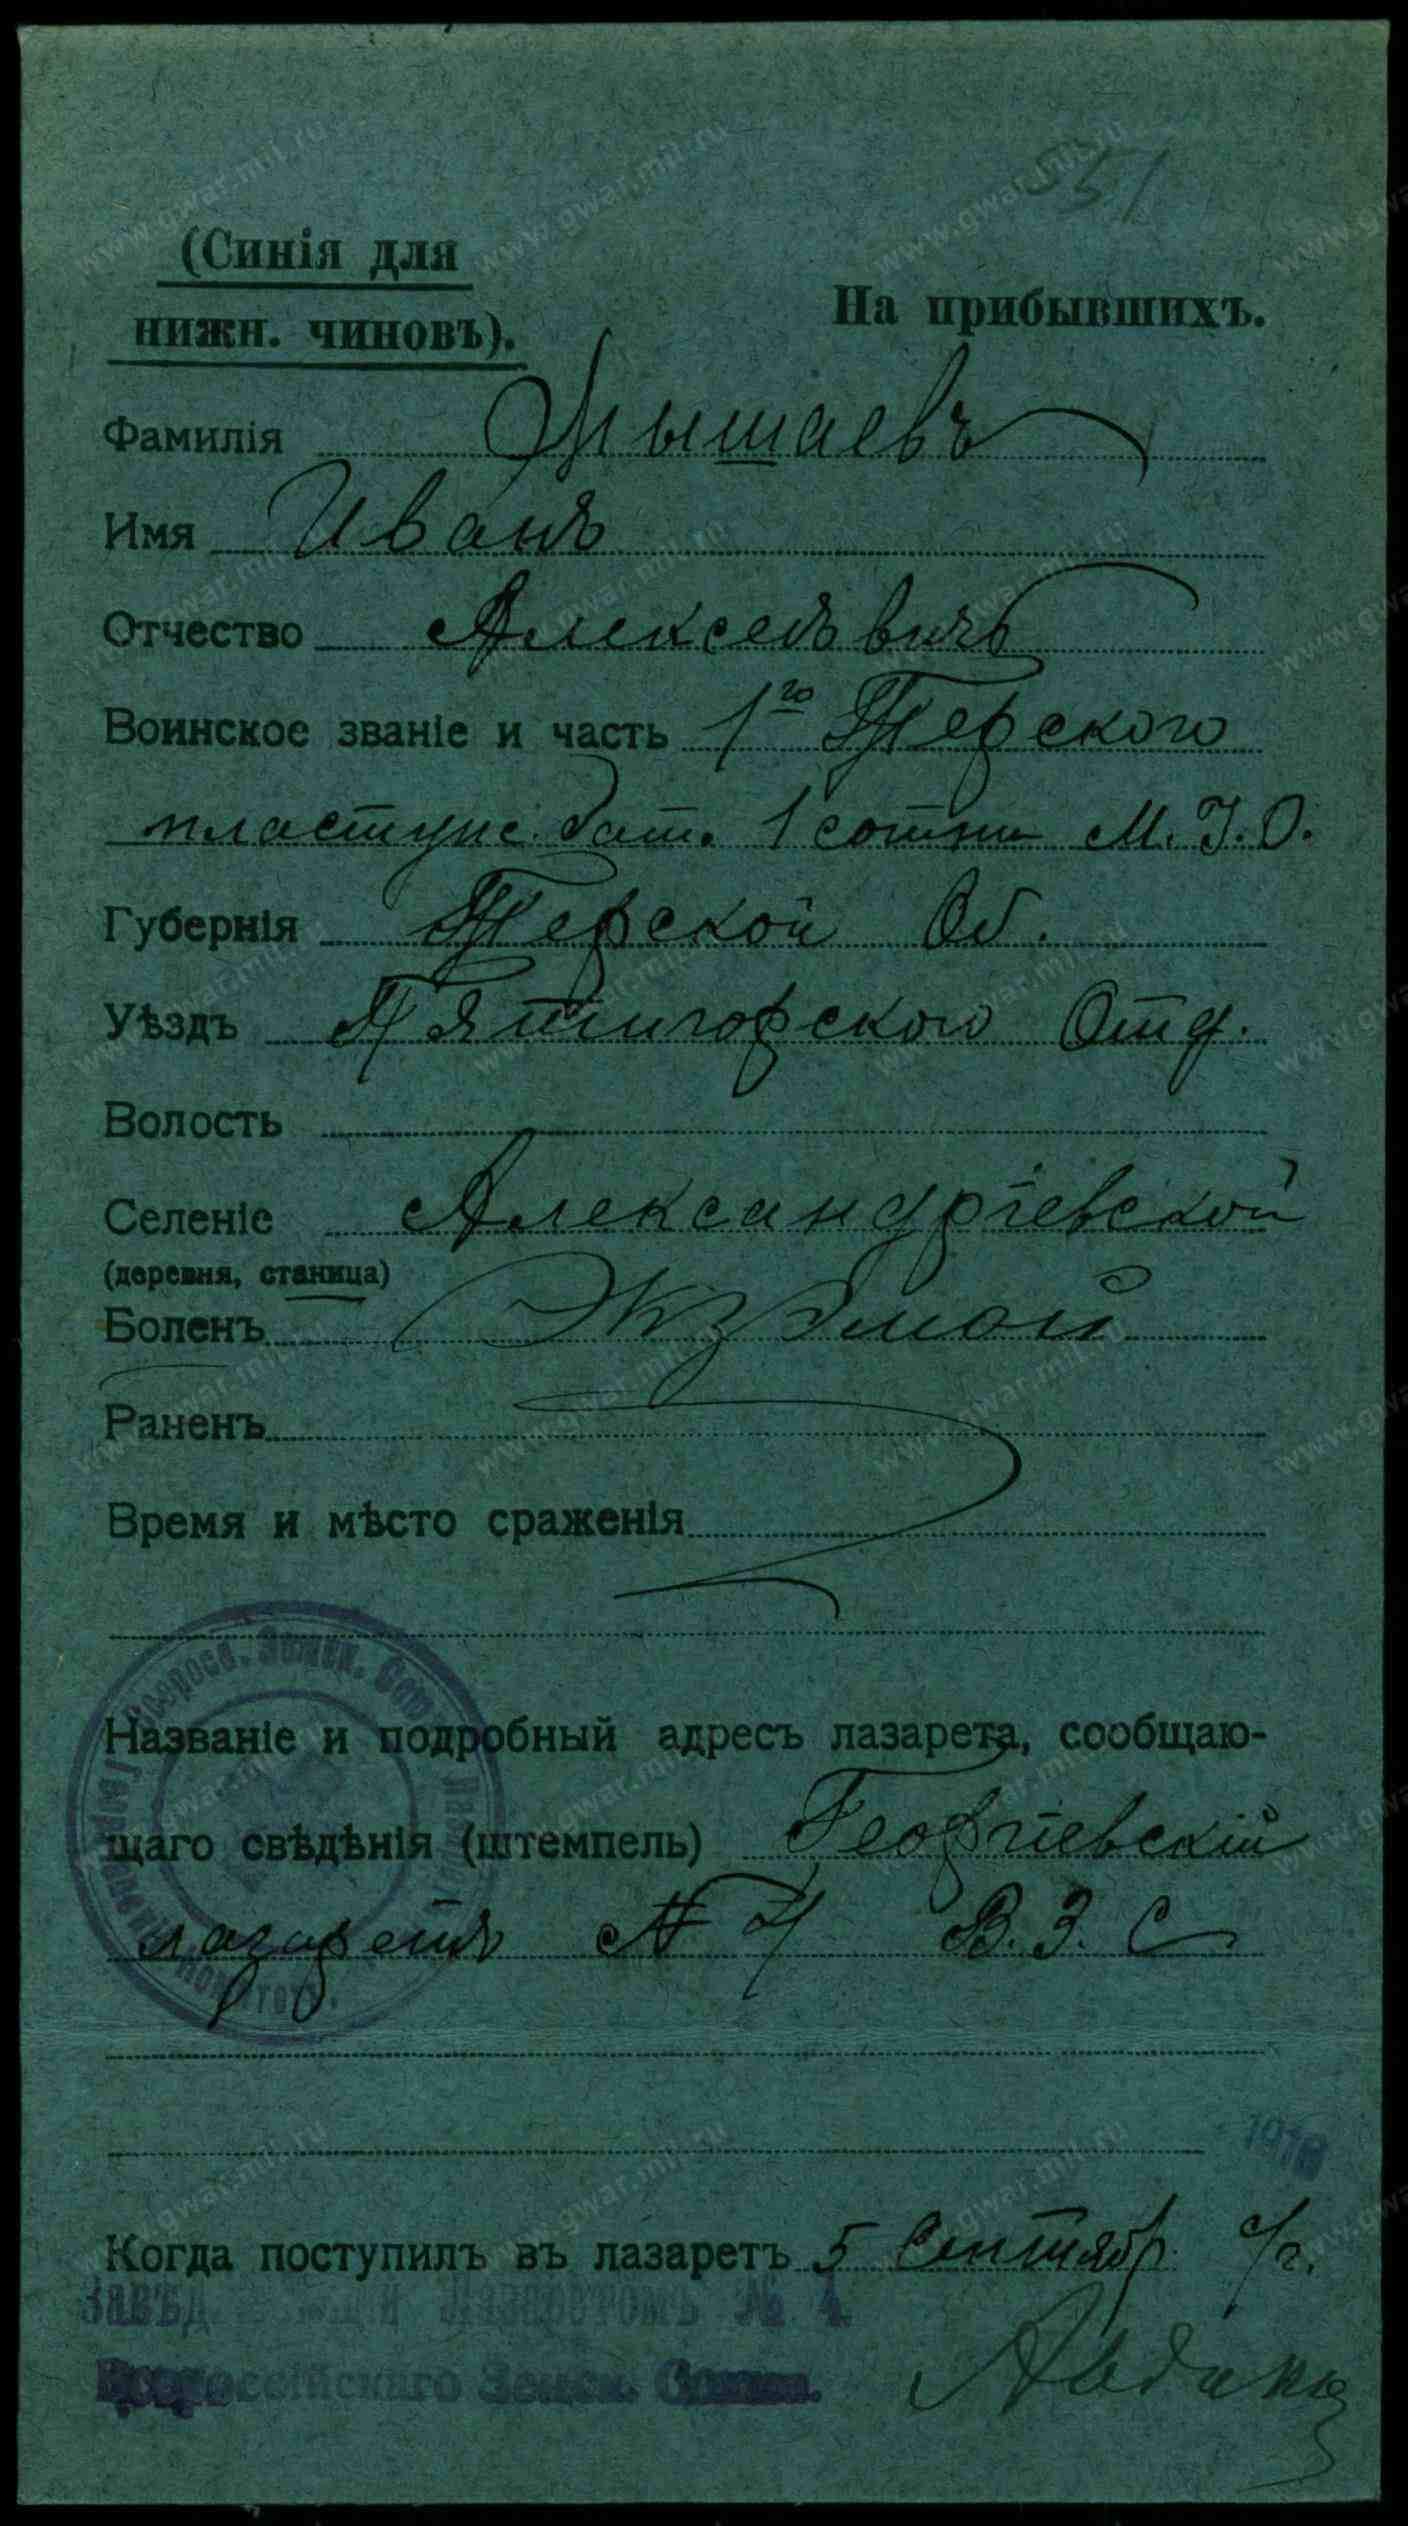 551
(Синія для
нижн. чиновъ).
На прибывшихъ.
Фамилія
Имя Иванъ
Отчество Алексѣевичъ
Воинское званіе и часть 1го Терского
пластунс. бат. 1 сотни М.Т.О.
Губернія Терской Об.
Уѣздъ Пятигорского Отд.
Волость
Селеніе Александріевской
(деревня, станица)
Боленъ Экземой
Раненъ
Время и мѣсто сраженія
Названіе и подробный адресъ лазарета, сообщаю-
щаго свѣдѣнія (штемпель) Георгіевскій
лазаретъ № 4 В.З.С
Когда поступилъ въ лазаретъ 5 Сентябр. с/г.
Лазаретомъ № 4.
Всероссійскаго Земск. Союза.
www.gwar.mil.ru